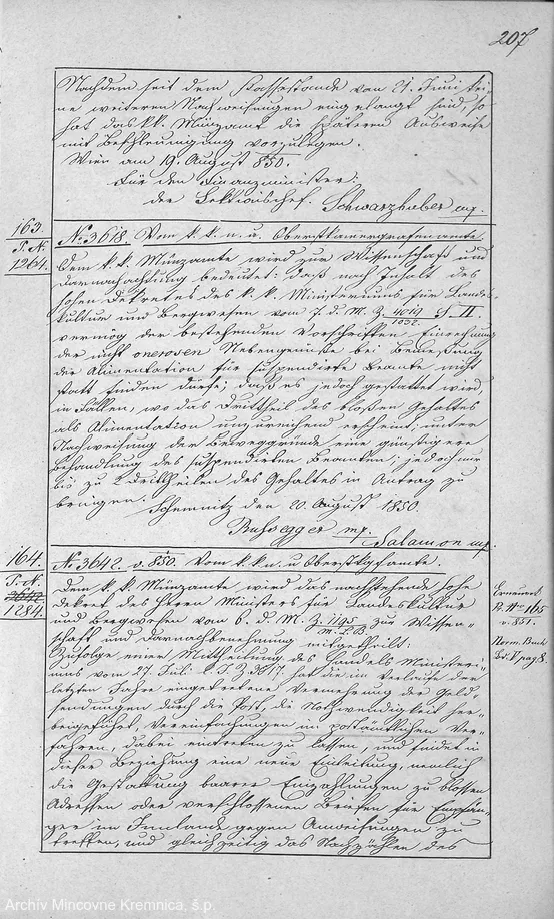 207
Nachdem seit dem Kassastande von 21. Juni kei-
ne weiteren Nachweisungen eingelangt sind, so
hat das k.k. Münzamt die späteren Ausweise
mit Beschleunigung vorzulegen.
Wien am 19. August 850.
Für den Finanzminister:
der Sektionschef. Schwarzhuber mp.
163.
P. N.
1264.
No 3618. Vom k. k. n. u. Oberstkamergrafenamte.
Dem k. k. Münzamte wird zur Wissenschaft und
Darnachachtung bedeutet: daß nach Inhalt des
hohen Dekretes des k. k. Ministeriums für Landes-
kultur und Bergwesen vom 7. d. M. Z. 4019/1032 II.
vermög der bestehenden Vorschriften Einrechnung
der nicht onerosen Nebengenüße bei Bemeßung
der Alimentation für suspendirte Beamte nicht
statt finden dürfe; daß es jedoch gestattet wird,
in Fällen, wo das Drittheil des bloßen Gehaltes
als Alimentation unzureichend erscheint; unter
Nachweisung der Beweggründe eine günstigere
Behandlung des suspendirten Beamten; jedoch nur
bis zu 2 Drittheilen des Gehaltes in Antrag zu
bringen. Schemnitz den 20. August 1850.
Russegger mp. Salamon mp.
164.
P. N.
3642
1284.
No 3642. v. 850. Vom k. k. n. u. Oberstkgfamte.
Dem k. k. Münzamte wird das nachstehende hohe
Dekret des Herrn Ministers für Landeskultur
und Bergwesen vom 6. d. M. Z. 1195/M. L. B. zur Wissen-
schaft und Darnachbenehmung mitgetheilt:
Zufolge einer Mittheilung des Handels Ministeri-
ums vom 27. Juli l. J. Z. 3817. hat die im Verlaufe der
letzten Jahre eingetretene Vermehrung der Geld-
sendungen durch die Post, die Nothwendigkeit her-
beigeführt, Vereinfachungen im postämtlichen Ver-
fahren, dabei eintreten zu lassen, und findet in
dieser Beziehung eine neue Einleitung, nemlich
die Gestattung baarer Einzahlungen zu blossen
Adressen oder verschlossenen Briefen für Empfän-
ger im Innlande gegen Anweisungen zu
treffen, und gleichzeitig das Nachzählen des
Erneuert
P. No 165
v. 851.
Norm. Buch
Bd. V pag 8.
Archív Mincovne Kremnica, š.p.